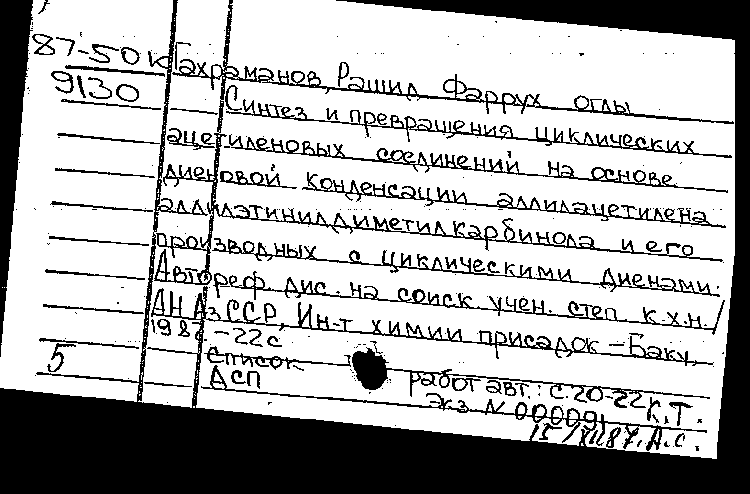 87-50к Гахраманов, Рашид Фаррух оглы
9130 Синтез и превращения циклических
ацетиленовых соединений на основе
диеновой конденсации аллилацетилена
аллилэтинилдиметилкарбинола и его
производных с циклическими диенами:
Автореф. дис. на соиск. учен. степ. к.х.н./
АН АзССР, Ин-т химии присадок - Баку,
-22с
5 Список работ авт.: с.20-22 К.Т.
ДСП экз N 000091
А.С.